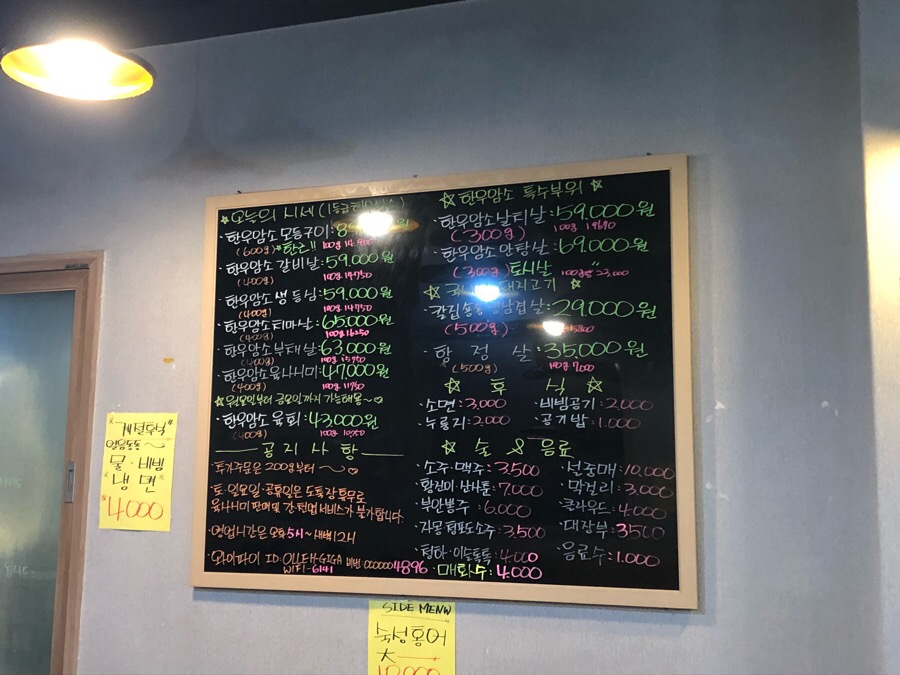 ☆오늘의 시세(1등급
·한우암소 모듬구이:8
(600g) *한근!! 100g 14.900
·한우암소 갈비살:59.000원
(400g) 100g 14750
·한우암소 생등심:59.000원
(400g) 100g 14750
·한우암소치마살:65.000원
(400g) 100g 16250
·한우암소부채살:63.000원
(400g) 100g 15750
·한우암소육사시미:47.000원
(400g) 100g 11750
☆월요일부터 금요일까지 가능해용~♡
·한우암소 육회:43.000원
(400g) 100g 10750
공지사항
·추가주문은 200g부터~♡
·토·일요일·공휴일은 도축장휴무로
육사시미 판매 및 간·천엽 서비스가 불가합니다.
·영업시간은 오후5시~새벽12시
·와이파이 ID:OLLEH-GIGA 비번:0000004896
WIFI-6141
☆한우암소 특수부위☆
·한우암소살치살:59.000원
(300g) 100g 19690
·한우암소안창살:69.000원
(300g) 토시살 100g 23,000
돼지고기☆
겹살:29.000원
(500g)
·항정살:35.000원
(500g) 100g 7.000
☆ 후식 ☆
·소면:3.000 ·비빔공기:2.000
·누룽지:2.000 ·공기밥:1.000
☆ 술 & 음료
·소주·맥주:3.500 ·설중매:10.000
·황진이·산사춘:7.000 ·막걸리:3.000
·부안뽕주:6.000 ·클라우드:4.000
·자몽·청포도소주:3.500 ·대장부:3500
·청하·이슬톡톡:4.000 ·음료수:1.000
·매화수:4.000
"계절후식"
얼음동동~
물·비빔
냉면
4.000
SIDE MENU
숙성홍어
大